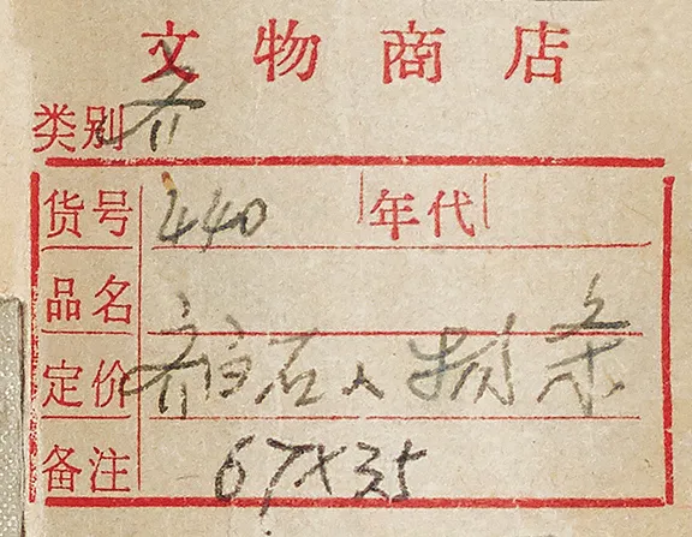 文物商店
类别 齐
货号 440 年代
品名
定价 齐白石人物条
备注 67×35